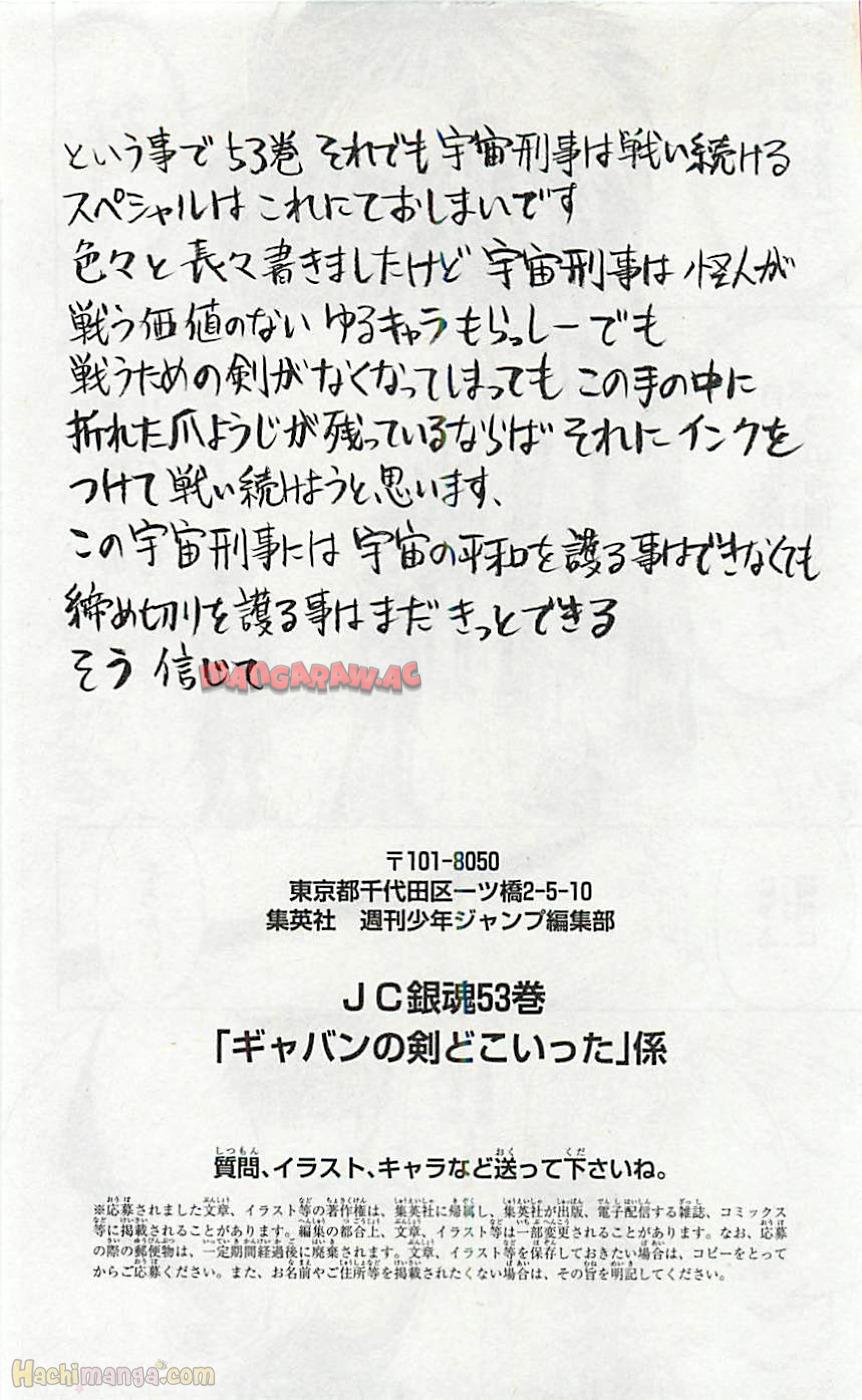 という事で53巻 それでも宇宙刑事は戦い続ける
スペシャルは これにておしまいです
色々と長々書きましたけど 宇宙刑事は 怪人が
戦う価値のない ゆるキャラもらっしーでも
戦うための剣がなくなってしまっても この手の中に
折れた爪ようじが残っているならば それにインクを
つけて戦い続けようと思います、
この宇宙刑事には 宇宙の平和を護る事はできなくても
締め切りを護る事はまだきっとできる
そう 信じて
MANGARAW.AC
〒101-8050
東京都千代田区一ツ橋2-5-10
集英社 週刊少年ジャンプ編集部
JC銀魂53巻
「ギャバンの剣どこいった」係
質問、イラスト、キャラなど送って下さいね。
※応募されました文章、イラスト等の著作権は、集英社に帰属し、集英社が出版、電子配信する雑誌、コミックス
等に掲載されることがあります。編集の都合上、文章、イラスト等は一部変更されることがあります。なお、応募
の際の郵便物は、一定期間経過後に廃棄されます。文章、イラスト等を保存しておきたい場合は、コピーをとって
からご応募ください。また、お名前やご住所等を掲載されたくない場合は、その旨を明記してください。
Hachimanga.com